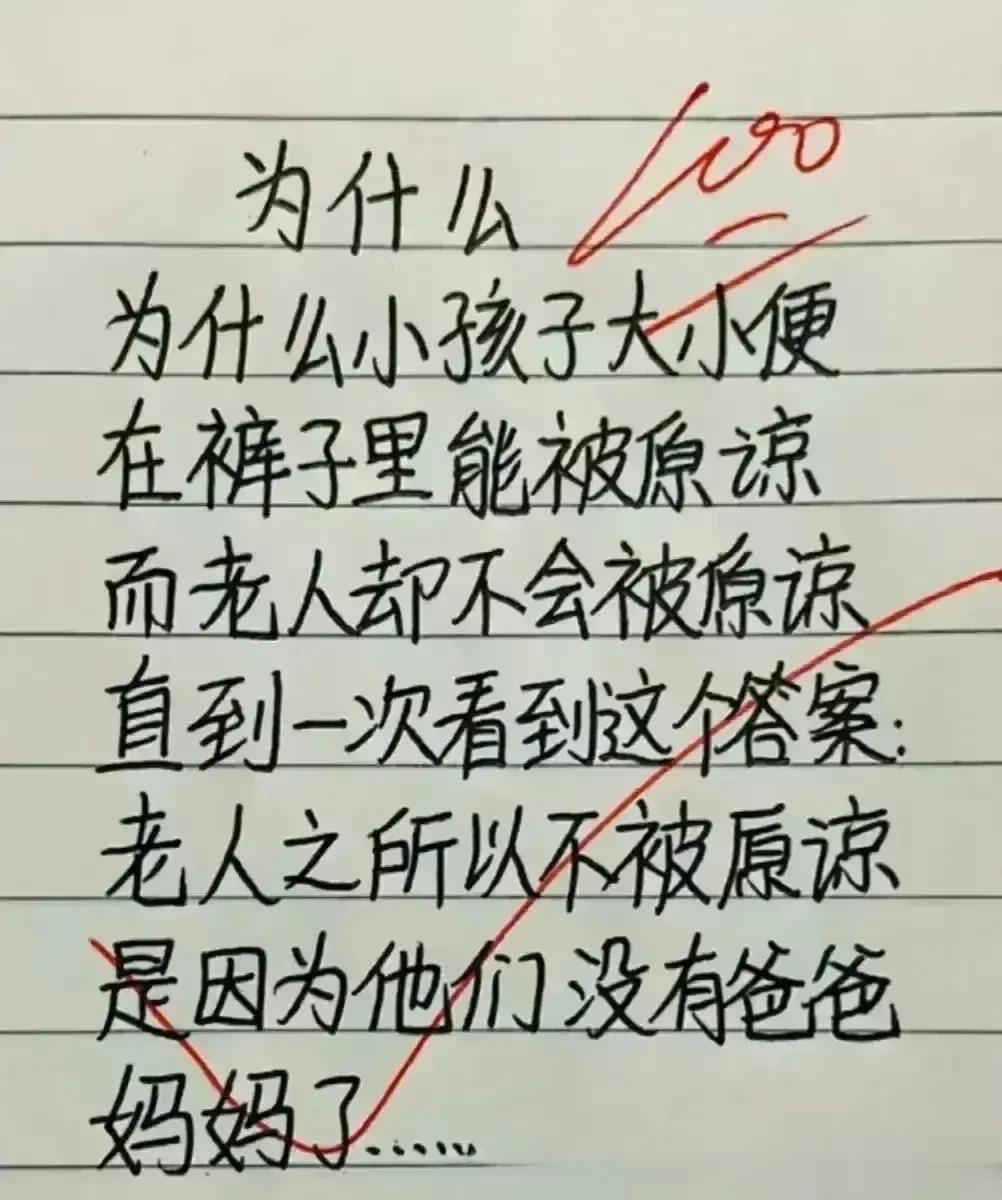 100
为什么
为什么小孩子大小便
在裤子里能被原谅
而老人却不会被原谅
直到一次看到这个答案:
老人之所以不被原谅
是因为他们没有爸爸
妈妈了......